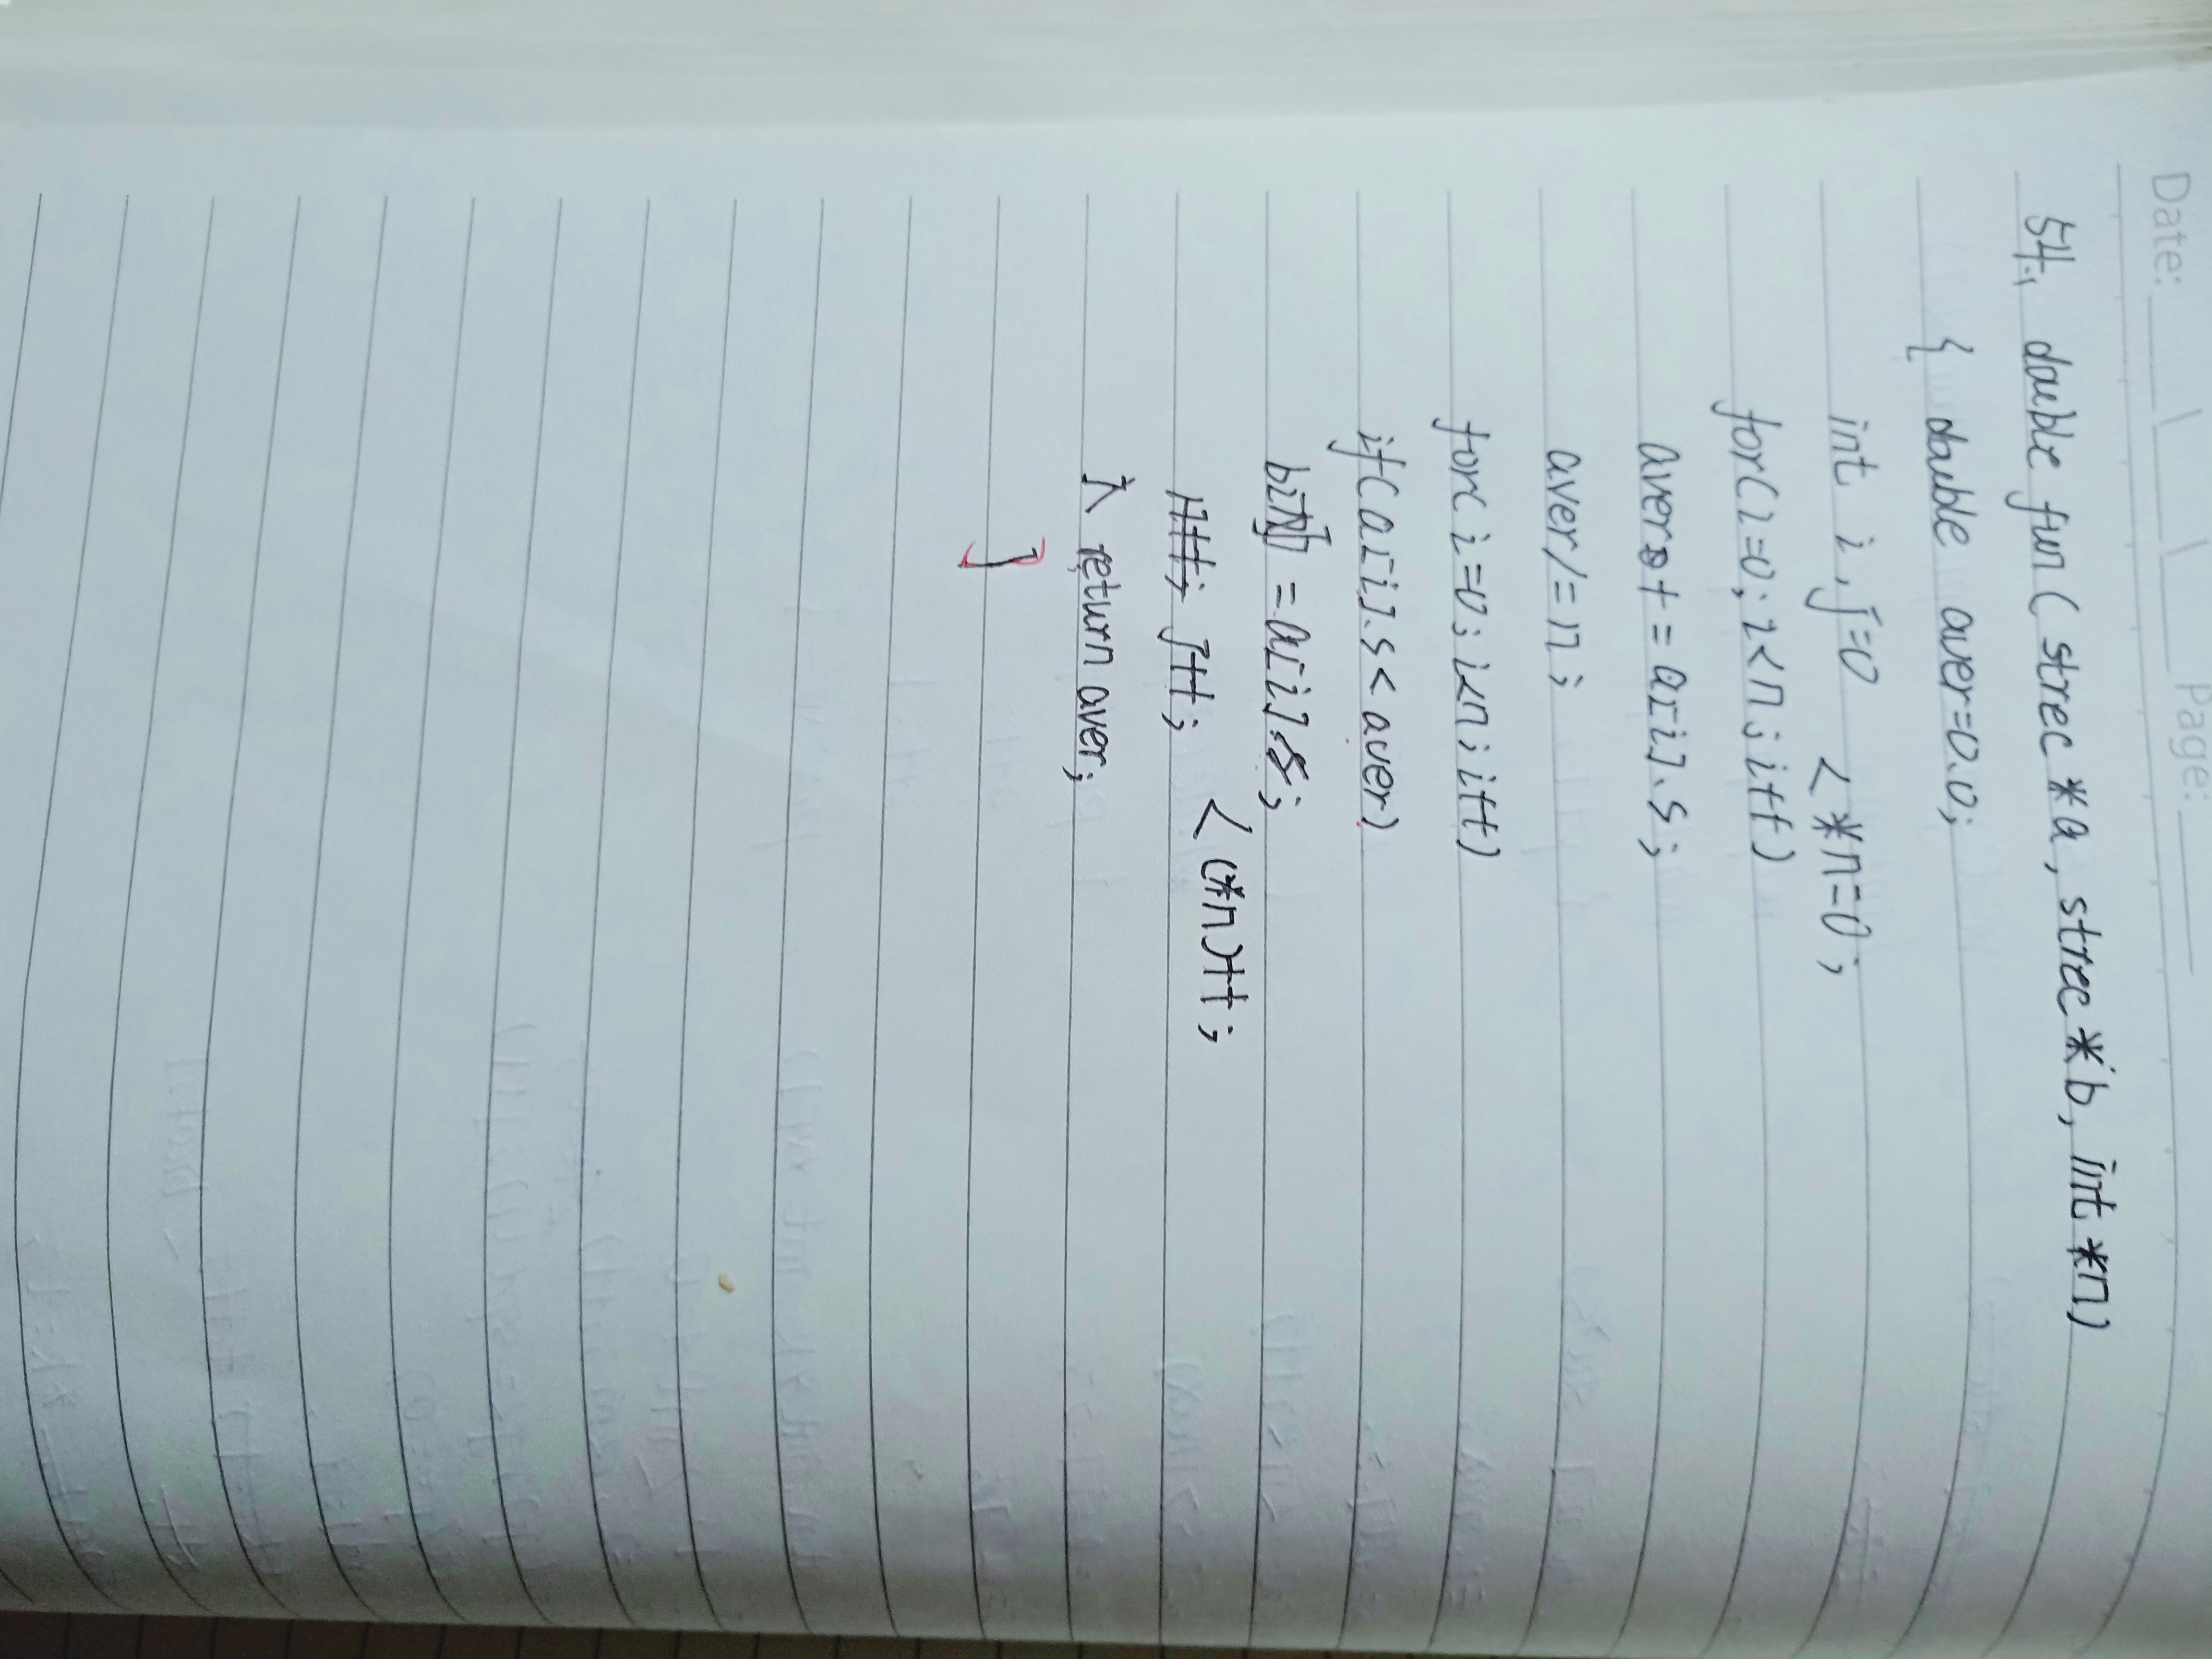 Date: Page:
54. double fun ( strec *a, strec *b, int *n)
{ double aver=0.0;
int i, j=0 < *n=0;
for(i=0; i<n; i++)
aver += a[i].s;
aver/=n;
for( i=0; i<n; i++)
if( a[i].s < aver)
= a[i].s;
j++; < (*n)++;
} return aver;
}